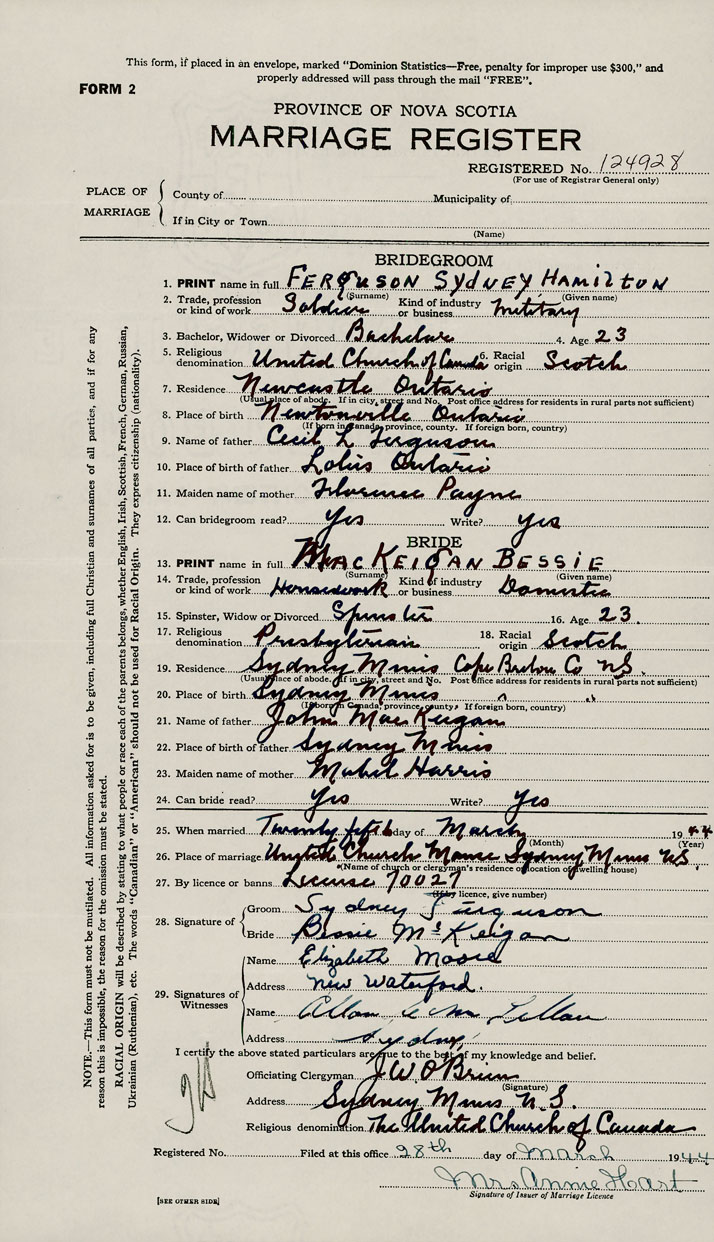 This form, if placed in an envelope, marked "Dominion Statistics—Free, penalty for improper use $300," and
properly addressed will pass through the mail "FREE".
FORM 2
PROVINCE OF NOVA SCOTIA
MARRIAGE REGISTER
REGISTERED No. 124928
(For use of Registrar General only)
PLACE OF MARRIAGE
County of
Municipality of
If in City or Town
(Name)
BRIDEGROOM
1. PRINT name in full FERGUSON SYDNEY HAMILTON
(Surname) (Given name)
2. Trade, profession or kind of work Soldier Kind of industry or business Military
3. Bachelor, Widower or Divorced Bachelor 4. Age 23
5. Religious denomination United Church of Canada 6. Racial origin Scotch
7. Residence Newcastle Ontario
(Usual place of abode. If in city, street and No. Post office address for residents in rural parts not sufficient)
8. Place of birth Newtonville Ontario
(If born in Canada, province, county. If foreign born, country)
9. Name of father Cecil L Ferguson
10. Place of birth of father Ontario
11. Maiden name of mother Florence Payne
12. Can bridegroom read? Yes Write? Yes
BRIDE
13. PRINT name in full MACKEIGAN BESSIE
(Surname) (Given name)
14. Trade, profession or kind of work Housework Kind of industry or business Domestic
15. Spinster, Widow or Divorced Spinster 16. Age 23.
17. Religious denomination Presbyterian 18. Racial origin Scotch
19. Residence Sydney Mines Cape Breton Co NS.
(Usual place of abode. If in city, street and No. Post office address for residents in rural parts not sufficient)
20. Place of birth Sydney Mines " "
(If born in Canada, province, county, If foreign born, country)
21. Name of father John MacKeigan
22. Place of birth of father Sydney Mines
23. Maiden name of mother Mabel Harris
24. Can bride read? Yes Write? Yes
25. When married Twenty fifth day of March 1944
(Month) (Year)
26. Place of marriage United Church Manse Sydney Mines NS.
(Name of church or clergyman's residence or location of dwelling house)
27. By licence or banns License 70027
(If by licence, give number)
28. Signature of
Groom Sydney Ferguson
Bride Bessie McKeigan
29. Signatures of Witnesses
Name Elizabeth Moore
Address New Waterford.
Name Allan
Address Sydney
I certify the above stated particulars are true to the best of my knowledge and belief.
Officiating Clergyman J W O'Brien
(Signature)
Address Sydney Mines N.S.
Religious denomination The United Church of Canada
Registered No. Filed at this office 28th day of March 1944
Mrs Annie Hart
Signature of Issuer of Marriage Licence
[SEE OTHER SIDE]
NOTE.—This form must not be mutilated. All information asked for is to be given, including full Christian and surnames of all parties, and if for any
reason this is impossible, the reason for the omission must be stated.
RACIAL ORIGIN will be described by stating to what people or race each of the parents belongs, whether English, Irish, Scottish, French, German, Russian,
Ukrainian (Ruthenian), etc. The words "Canadian" or "American" should not be used for Racial Origin. They express citizenship (nationality).